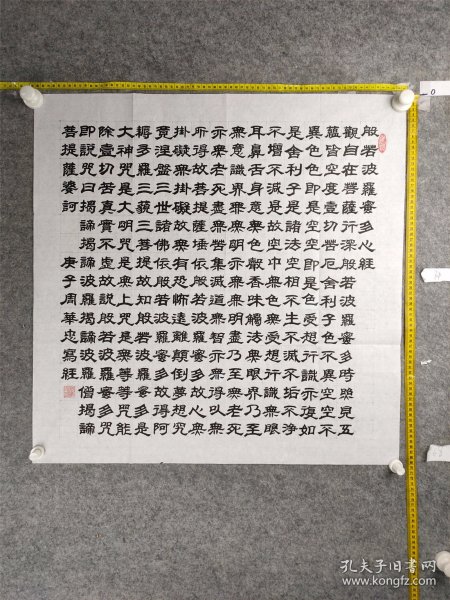 般若波羅蜜多心經
觀自在菩薩行深般若波羅蜜多時照見五
蘊皆空度壹切苦厄舍利子色不異空空不
異色色即是空空即是色受想行識亦復如
是舍利子是諸法空相不生不滅不垢不淨
不增不減是故空中無色無受想行識無眼
耳鼻舌身意無色聲香味觸法無眼界乃至
無意識界無無明亦無無明盡乃至無老死
亦無老死盡無苦集滅道無智亦無得以無
所得故菩提薩埵依般若波羅蜜多故心無
掛礙無掛礙故無有恐怖遠離顛倒夢想究
竟涅盤三世諸佛依般若波羅蜜多故得阿
耨多羅三藐三菩提故知般若波羅蜜多是
大神咒是大明咒是無上咒是無等等咒能
除壹切苦真實不虛故說般若波羅蜜多咒
即說咒曰揭諦揭諦波羅揭諦波羅僧揭諦
菩提薩婆訶 庚子周華忠寫經
孔夫子旧书网
www.kongfz.com